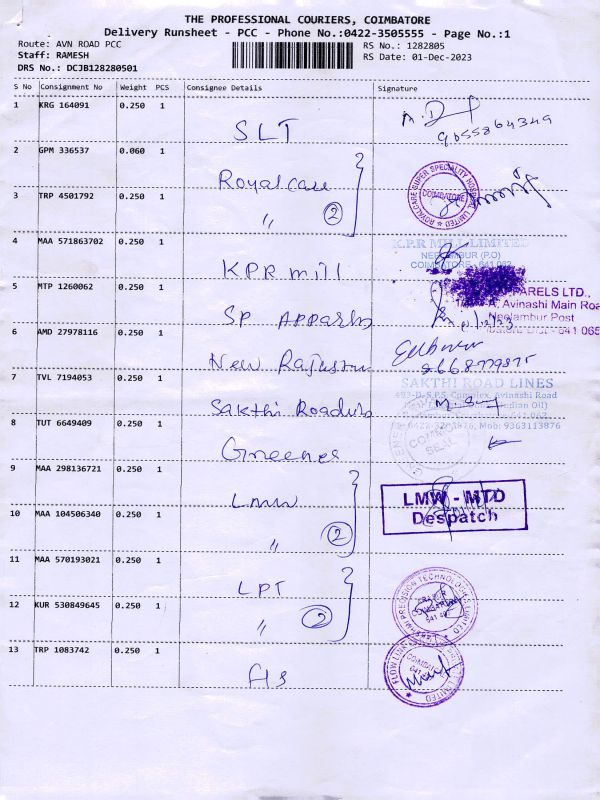 THE PROFESSIONAL COURIERS, COIMBATORE
Delivery Runsheet - PCC - Phone No.:0422-3505555 - Page No.:1
Route: AVN ROAD PCC RS No.: 1282805
Staff: RAMESH RS Date: 01-Dec-2023
DRS No.: DCJB128280501
S No Consignment No Weight PCS Consignee Details Signature
1 KRG 164091 0.250 1
SLT
9055864349
2 GPM 336537 0.060 1
Royalcare
3 TRP 4501792 0.250 1
" 2
ROYALCARE SUPER SPECIALITY HOSPITAL LIMITED
COIMBATORE
4 MAA 571863702 0.250 1
KPR mill
K.P.R MILL LIMITED
NEELAMBUR (P.O)
COIMBATORE - 641 062
5 MTP 1260062 0.250 1
SP Apparls
PARELS LTD.,
Avinashi Main Road
Neelambur Post
641 065
6 AMD 27978116 0.250 1
New Rajastan
7 TVL 7194053 0.250 1
Sakthi Roadlines
SAKTHI ROAD LINES
Complex, Avinashi Road
Indian Oil)
Mob: 9363113876
8 TUT 6649409 0.250 1
Greenes
SEAL
9 MAA 298136721 0.250 1
LMW
10 MAA 104506340 0.250 1
" 2
LMW - MTD
Despatch
11 MAA 570193021 0.250 1
LPT
12 KUR 530849645 0.250 1
" 2
PRECISION TECHNOLOGIES LIMITED
13 TRP 1083742 0.250 1
FLOW LINK
LIMITED